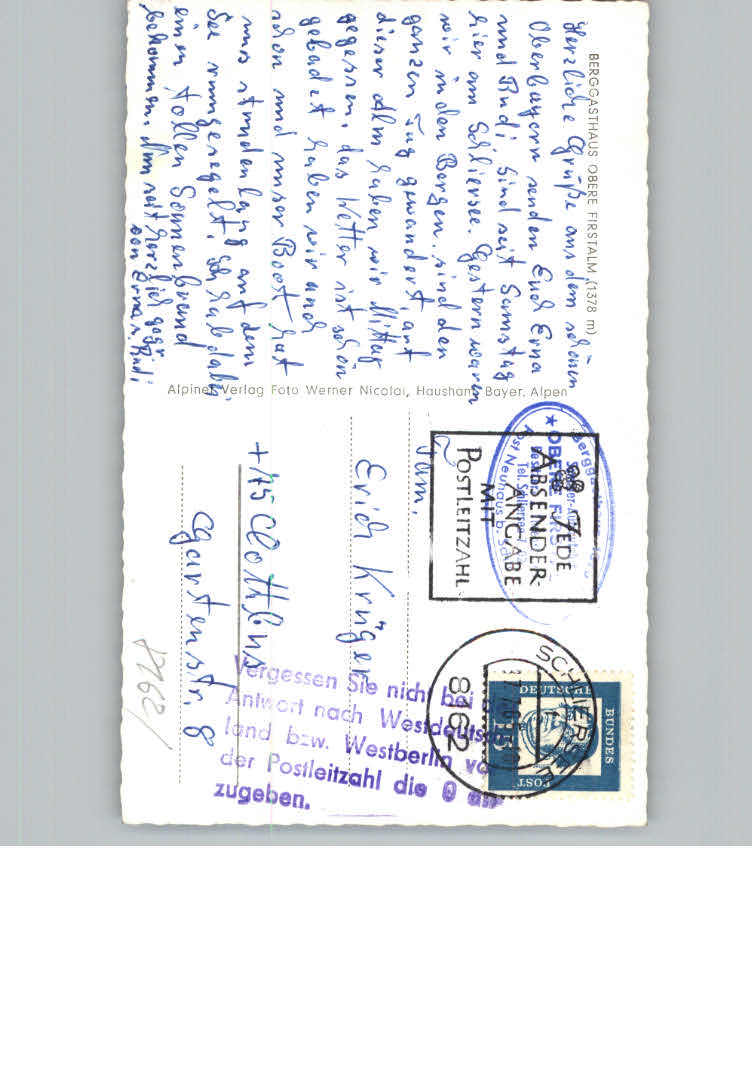 BERGGASTHAUS OBERE FIRSTALM (1378 m)
Herzliche Grüße aus dem schönen
Oberbayern senden Euch Erna
und Rudi. Sind seit Samstag
hier am Schliersee. Gestern waren
wir in den Bergen, sind den
ganzen Tag gewandert, auf
dieser Alm haben wir Mittag
gegessen, das Wetter ist schön
gebadet haben wir auch
schon und unser Boot hat
uns stundenlang auf dem
See rumgesegelt, ich hab dabei
einen tollen Sonnenbrand
bekommen. Nun seit herzlich gegr.
von Erna u. Rudi
Alpiner Verlag Foto Werner Nicolai, Hausham, Bayer. Alpen
★ OBERE
Post Neuhaus b.
JEDE
ABSENDER-
ANGABE
MIT
POSTLEITZAHL
SCHLIERSEE
8162
DEUTSCHE
BUNDES
POST
15
Fam.
Erich Krüger
+ 75 Cottbus
Gartenstr. 8
Vergessen Sie nicht bei
Antwort nach Westdeutsch-
land bzw. Westberlin vor
der Postleitzahl die 0 an
zugeben.